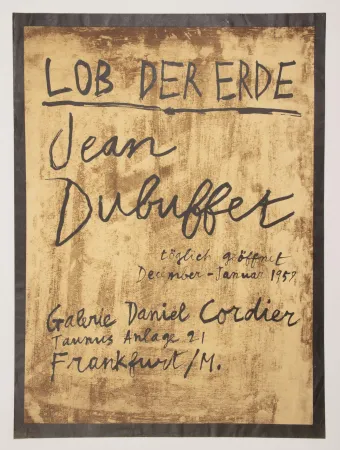 LOB DER ERDE
Jean
Dubuffet
täglich geöffnet
Decemher-Januar 1959
Galerie Daniel Cordier
Taunus Anlage 21
Frankfurt/M.